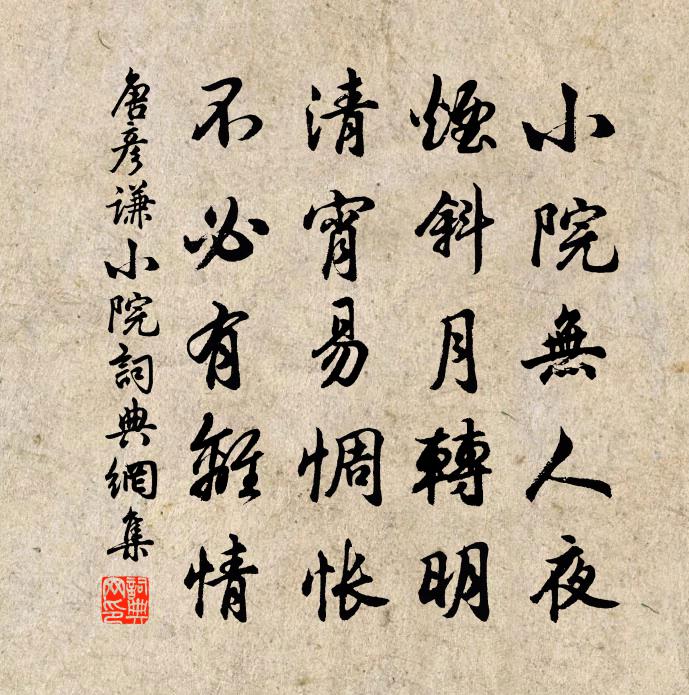 小院無人夜
煙斜月轉明
清宵易惆悵
不必有離情
唐彦谦小院詞典網集
詞典网印